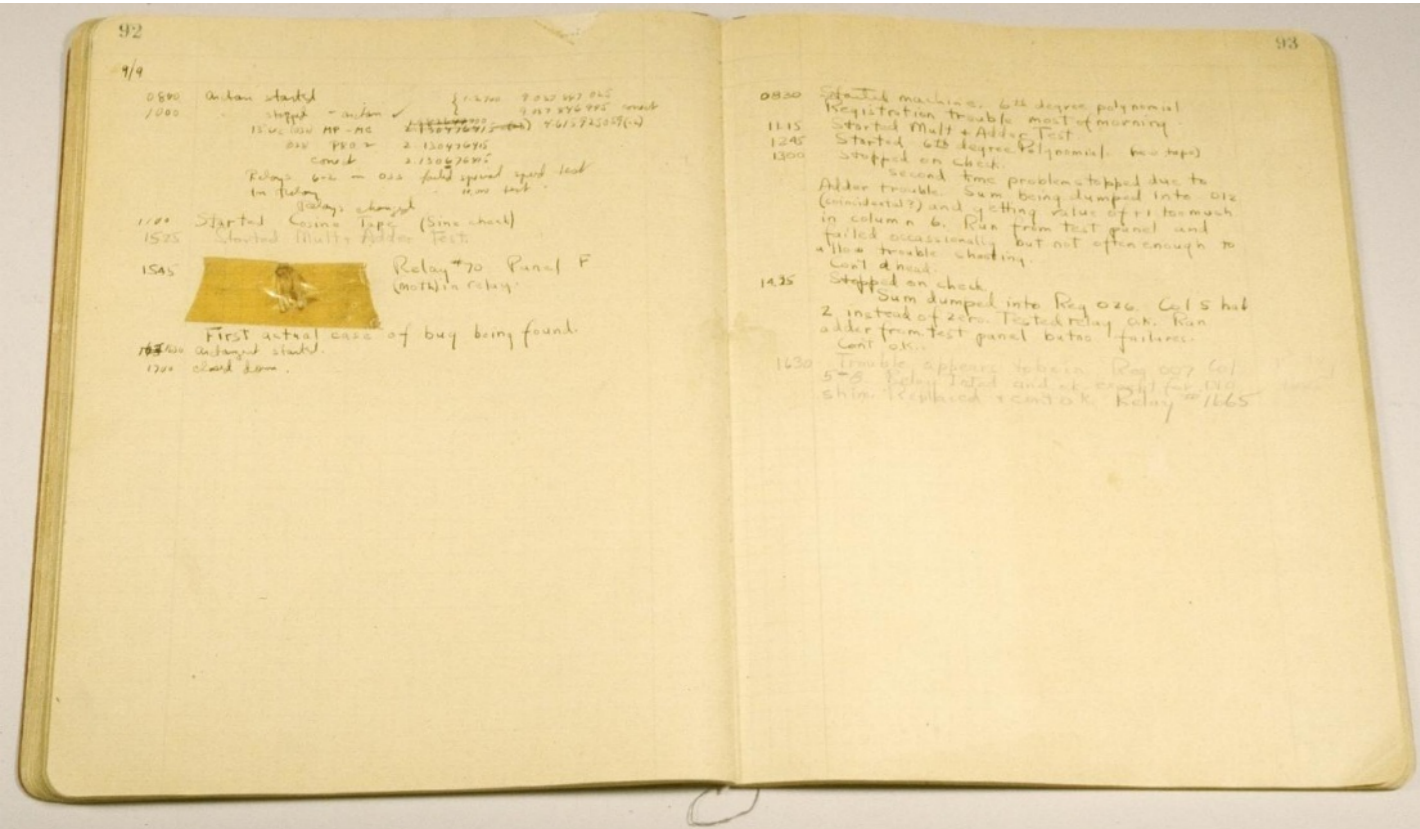 92
9/9
0800 antan started
1000 " stopped - antan ✓ { 1.2700 9.037 847 025
9.037 846 995 correct
13 MP - MC 4.615925059(-2)
033 PRO 2 2.130476415
correct 2.130676415
Relays 6-2 in 033 failed special speed test
In Relay " 11.00 test.
Relays changed
1100 Started Cosine Tape (Sine check)
1525 Started Mult + Adder Test.
1545 Relay #70 Panel F
(moth) in relay.
First actual case of bug being found.
1630 antangent started.
1700 closed down.
93
0830 Started machine. 6th degree polynomial
Registration trouble most of morning.
1115 Started Mult + Adder Test
1245 Started 6th degree Polynomial. (new tape)
1300 Stopped on check.
Second time problem stopped due to
Adder trouble. Sum being dumped into 012
(coincidental?) and getting value of +1 too much
in column 6. Run from test panel and
failed occassionally but not often enough to
allow trouble shooting.
Con't ahead.
1425 Stopped on check.
Sum dumped into Reg 026. Col 5 had
2 instead of zero. Tested relay o.k. Ran
adder from test panel but no failures.
Con't o.k..
1630 Trouble appears to be in Reg 007 Col
5-5. Relay tested and ok except for
shim. Replaced + cont o.k. Relay #1665